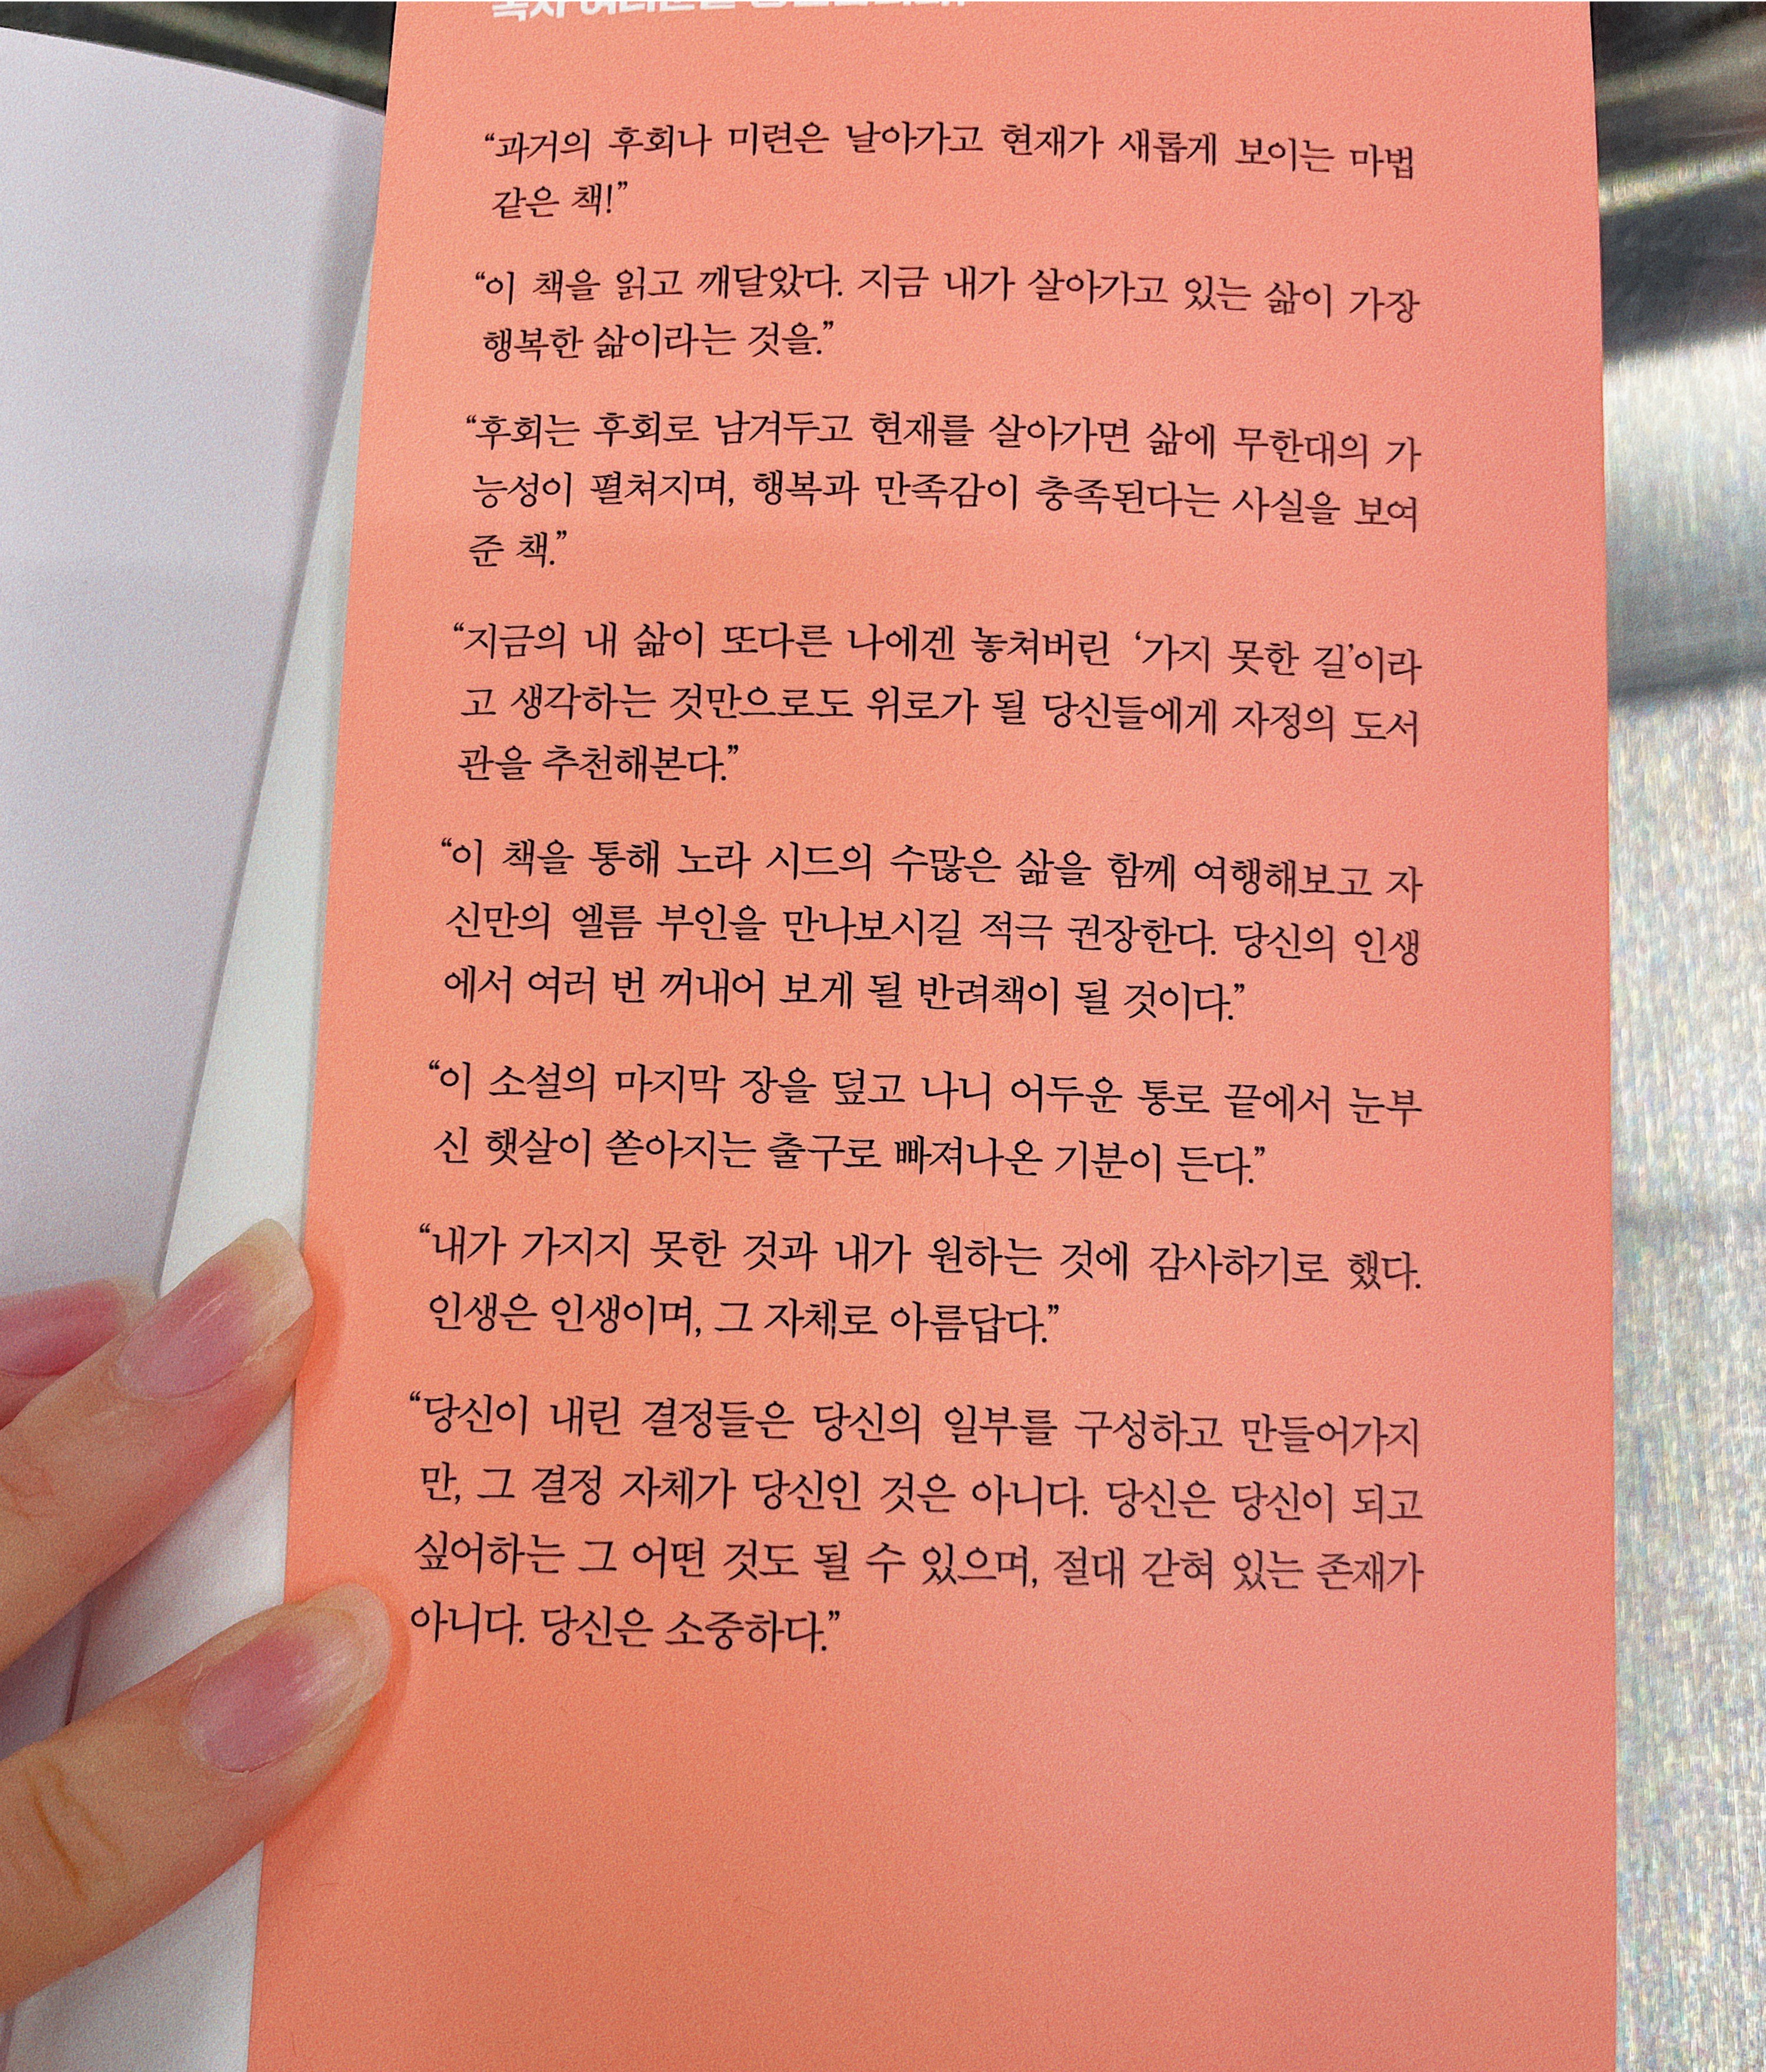 “과거의 후회나 미련은 날아가고 현재가 새롭게 보이는 마법
같은 책!”
“이 책을 읽고 깨달았다. 지금 내가 살아가고 있는 삶이 가장
행복한 삶이라는 것을.”
“후회는 후회로 남겨두고 현재를 살아가면 삶에 무한대의 가
능성이 펼쳐지며, 행복과 만족감이 충족된다는 사실을 보여
준 책.”
“지금의 내 삶이 또다른 나에겐 놓쳐버린 ‘가지 못한 길’이라
고 생각하는 것만으로도 위로가 될 당신들에게 자정의 도서
관을 추천해본다.”
“이 책을 통해 노라 시드의 수많은 삶을 함께 여행해보고 자
신만의 엘름 부인을 만나보시길 적극 권장한다. 당신의 인생
에서 여러 번 꺼내어 보게 될 반려책이 될 것이다.”
“이 소설의 마지막 장을 덮고 나니 어두운 통로 끝에서 눈부
신 햇살이 쏟아지는 출구로 빠져나온 기분이 든다.”
“내가 가지지 못한 것과 내가 원하는 것에 감사하기로 했다.
인생은 인생이며, 그 자체로 아름답다.”
“당신이 내린 결정들은 당신의 일부를 구성하고 만들어가지
만, 그 결정 자체가 당신인 것은 아니다. 당신은 당신이 되고
싶어하는 그 어떤 것도 될 수 있으며, 절대 갇혀 있는 존재가
아니다. 당신은 소중하다.”